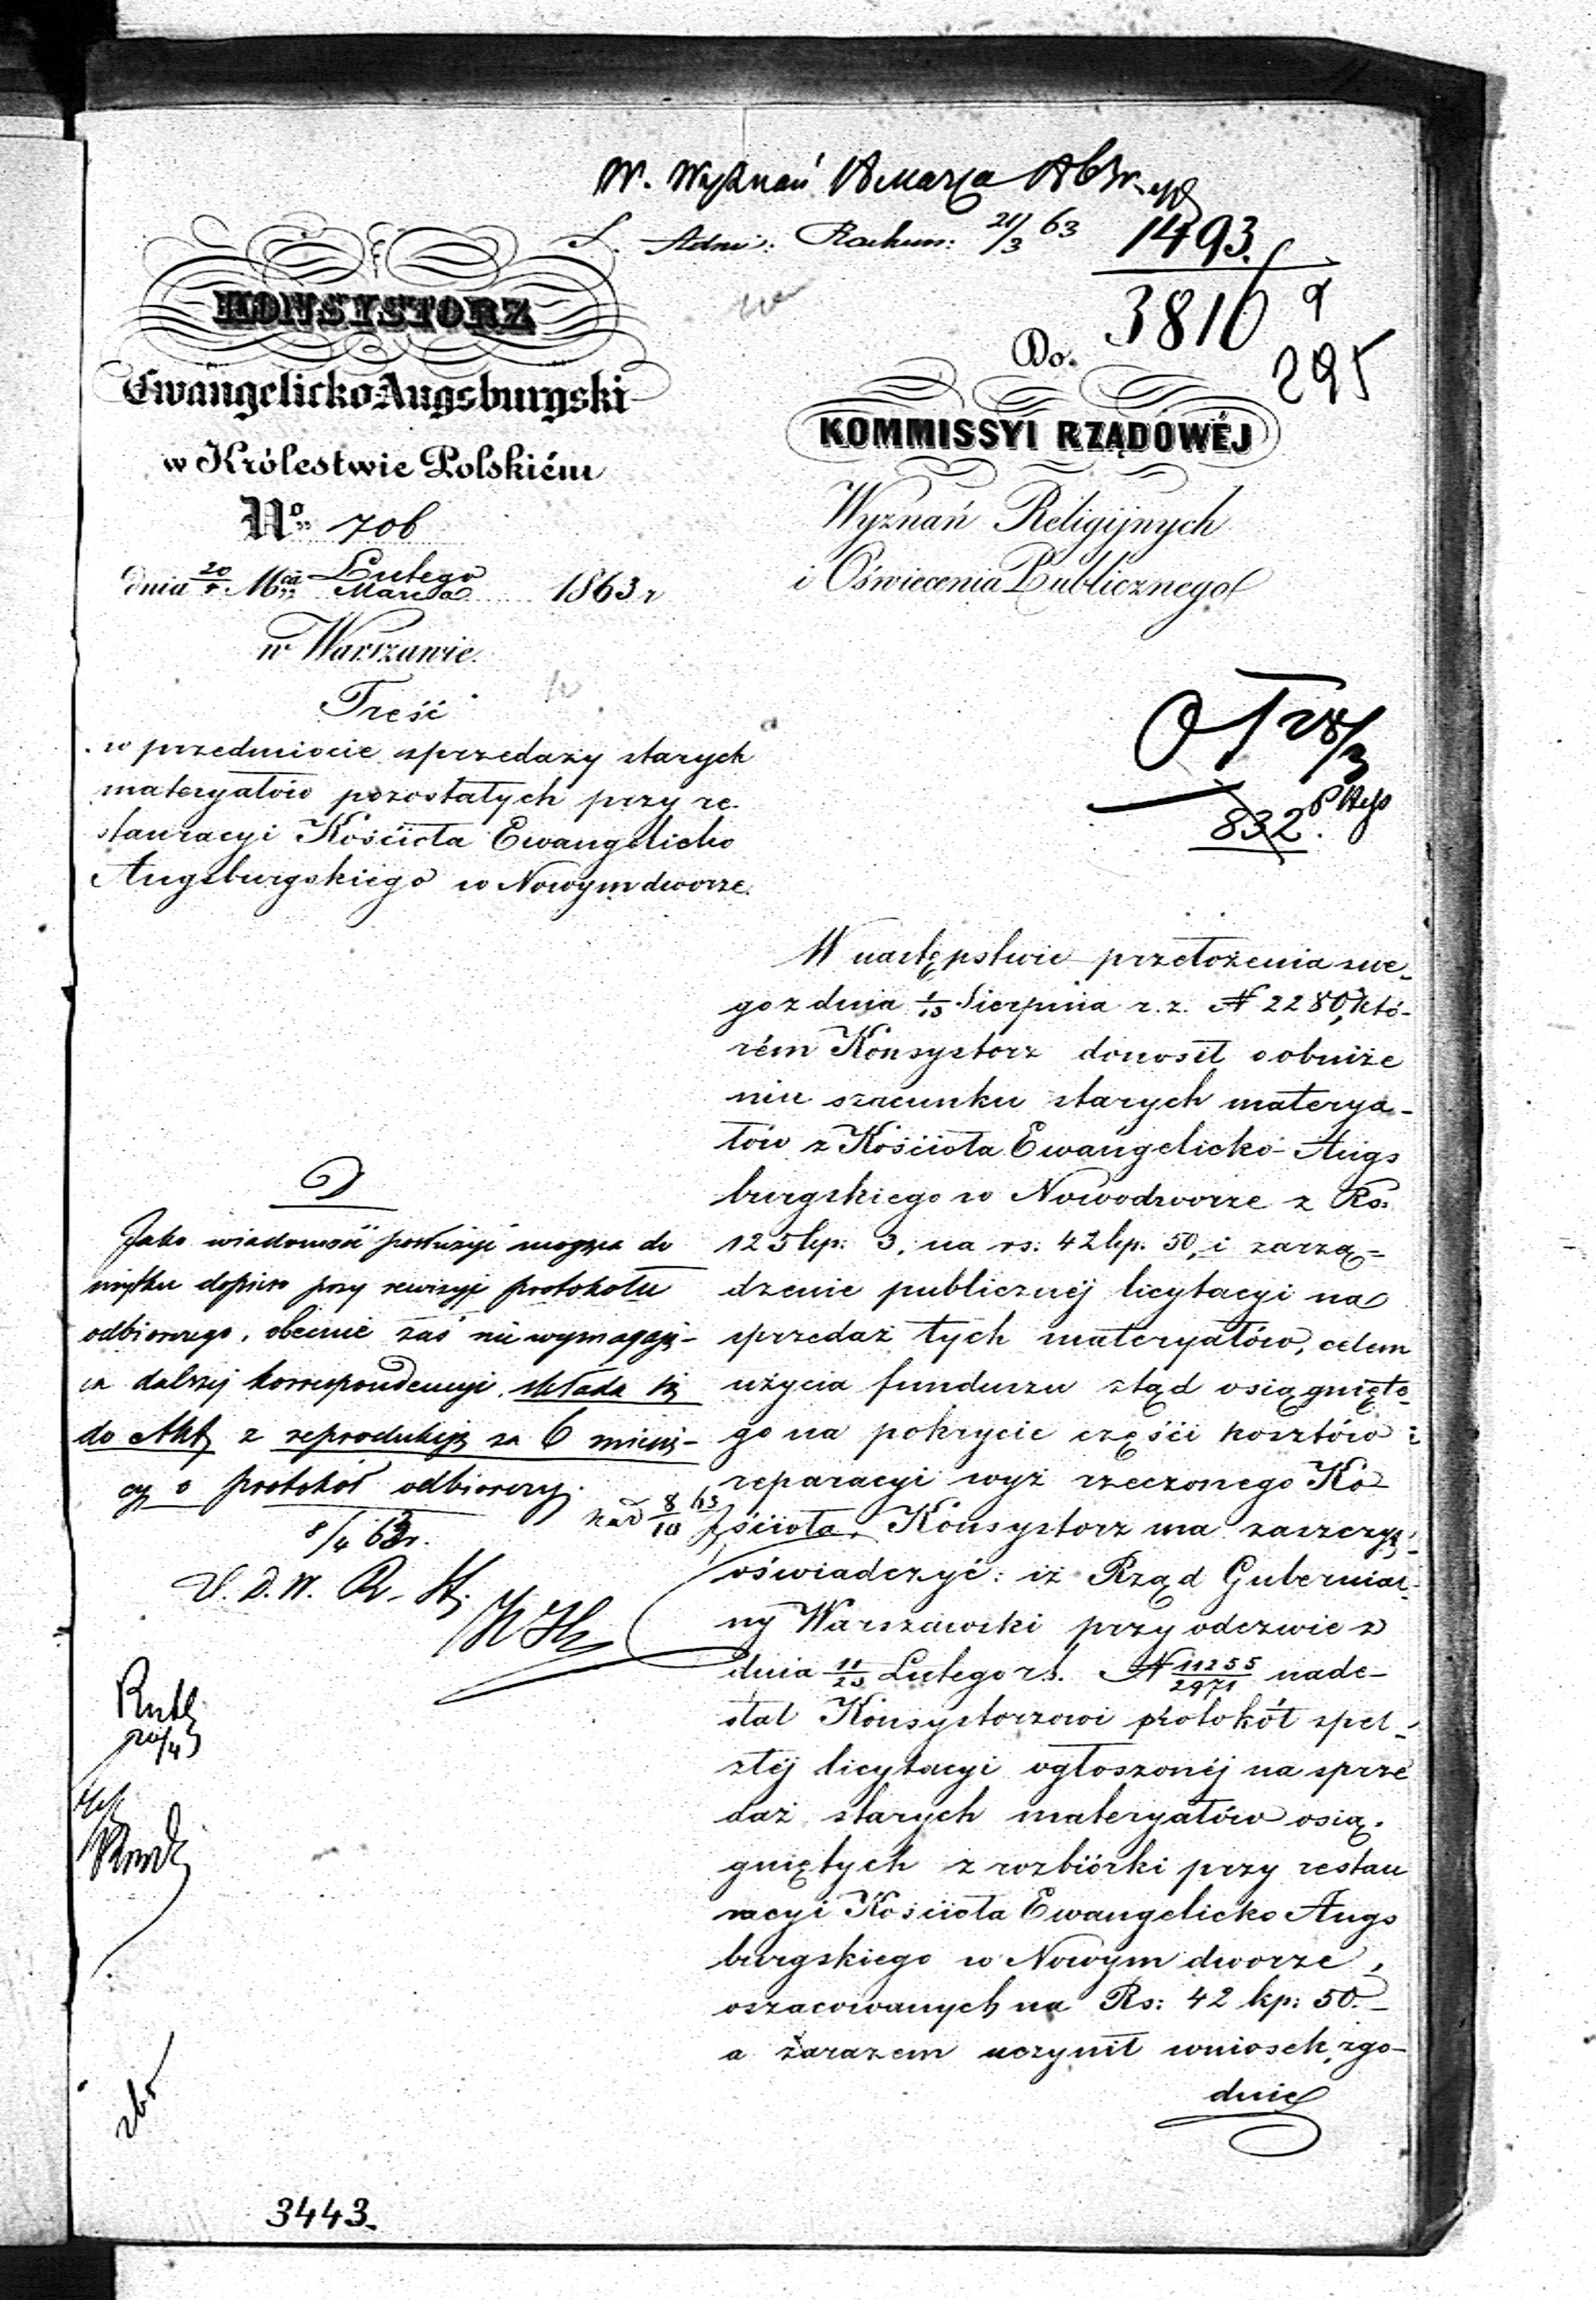 W. Wyznań
S. Adm: Rachun: 21/3 63
1493.
3816
295
KONSYSTORZ
Ewangelicko-Augsburgski
w Królestwie Polskiém
No. 706
dnia 20/4 Mca Lutego/Marca 1863 r
w Warszawie.
Treść
w przedmiocie sprzedaży starych
materyałów pozostałych przy re-
stauracyi Kościoła Ewangelicko
Augsburgskiego w Nowymdworze.
Do.
KOMMISSYI RZĄDOWÉJ
Wyznań Religijnych
i Oświecenia Publicznego
28/3
832
W następstwie przełożenia swe-
go z dnia 1/13 Sierpnia r.z. N 2280, któ-
rém Konsystorz donosił o obniże
niu szacunku starych materya-
łów z Kościoła Ewangelicko-Augs
burgskiego w Nowodworze z Rs.
125 kp: 3, na rs: 42 kp. 50, i zarzą-
dzenie publicznéj licytacyi na
sprzedaż tych materyałów, celem
użycia funduszu ztąd osiągnięte-
go na pokrycie części kosztów
reparacyi wyż rzeczonego Ko-
ścioła, Konsystorz ma zaszczyt
oświadczyć: iż Rząd Gubernial-
ny Warszawski przy odezwie z
dnia 11/23 Lutego r.b. N 11255/2971 nade-
słał Konsystorzowi protokół speł-
złéj licytacyi ogłoszonéj na sprze
daż starych materyałów osią-
gniętych z rozbiórki przy restau
racyi Kościoła Ewangelicko Augs
burgskiego w Nowym dworze,
oszacowanych na Rs: 42 kp: 50.-
a zarazem uczynił wniosek, zgo-
dnie
Jako wiadomość posłużyć mogąca do
użytku dopiero przy rewizyi protokołu
odbiorczego, obecnie zaś nie wymagają-
ca dalszéj korrespondencyi, składa się
do Akt z reprodukcją za 6 miesię-
cy o protokół odbiorczy.
8/4 63 r.
8/10 63
3443.